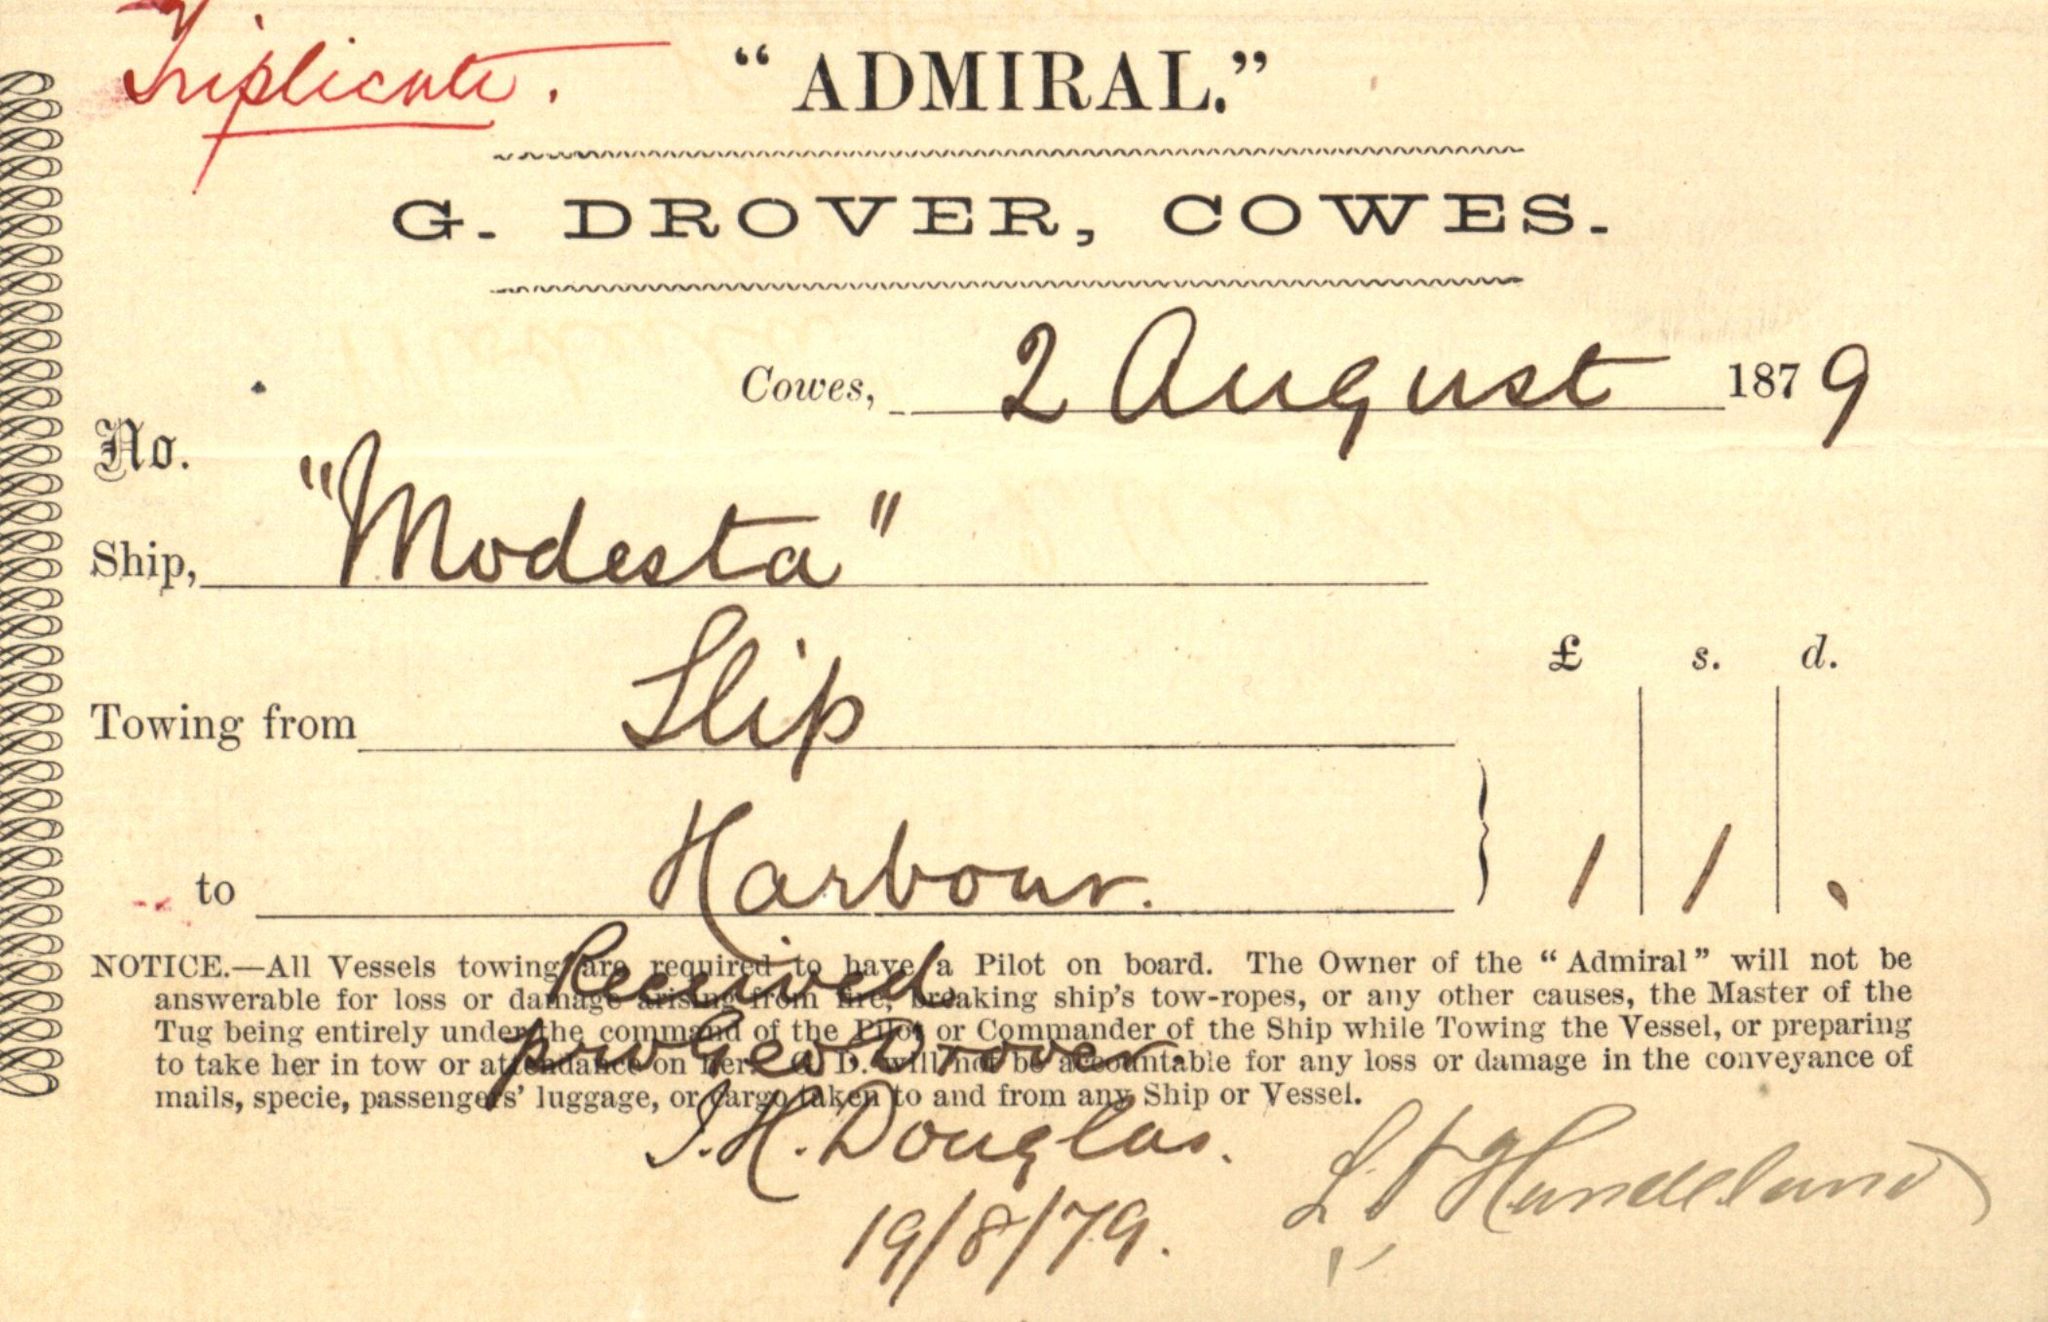 Triplicate.
"ADMIRAL."
G. DROVER, COWES.
Cowes, 2 August 1879
No.
Ship, "Modesta"
£ s. d.
Towing from Slip
to Harbour. 1 1 .
NOTICE.—All Vessels towing are required to have a Pilot on board. The Owner of the "Admiral" will not be
answerable for loss or damage arising from fire, breaking ship's tow-ropes, or any other causes, the Master of the
Tug being entirely under the command of the Pilot or Commander of the Ship while Towing the Vessel, or preparing
to take her in tow or attendance on her. G. D. will not be accountable for any loss or damage in the conveyance of
mails, specie, passengers' luggage, or cargo taken to and from any Ship or Vessel.
Received
pro Geo Drover.
J. H. Douglas.
19/8/79.